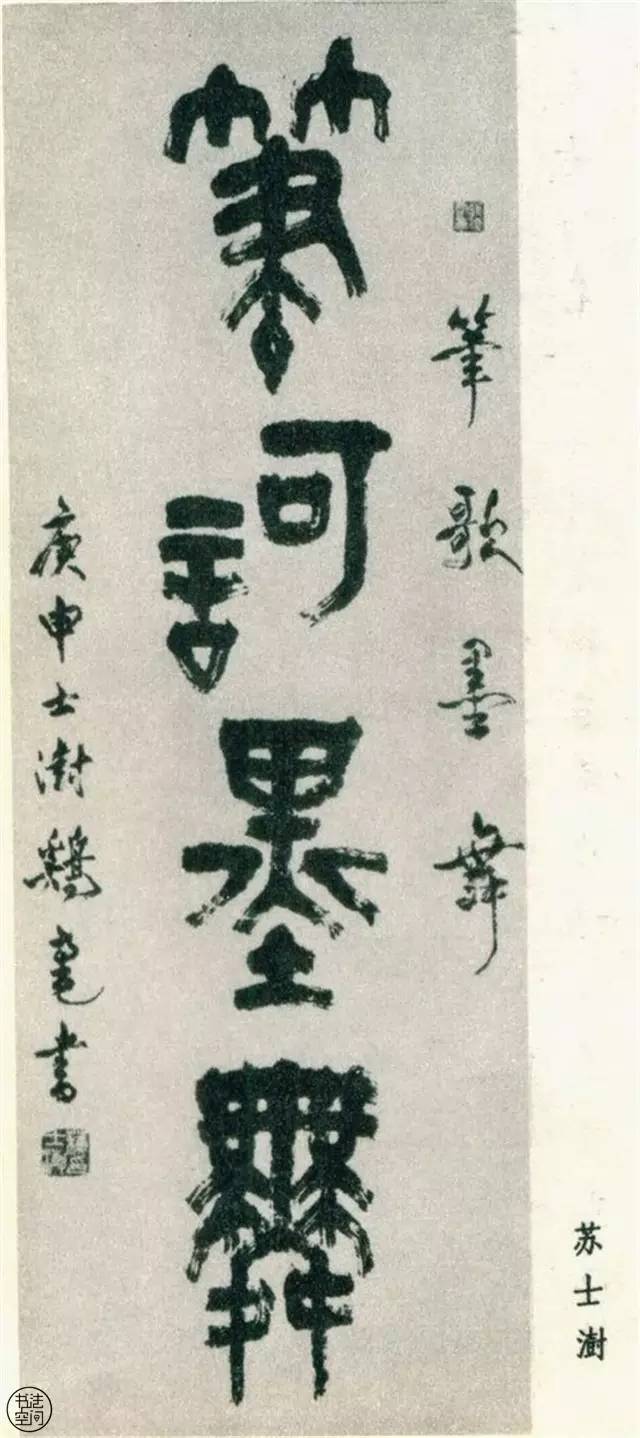 苏士澍
筆歌墨舞
筆訶墨舞
庚申士澍鷄毫書
书法空间